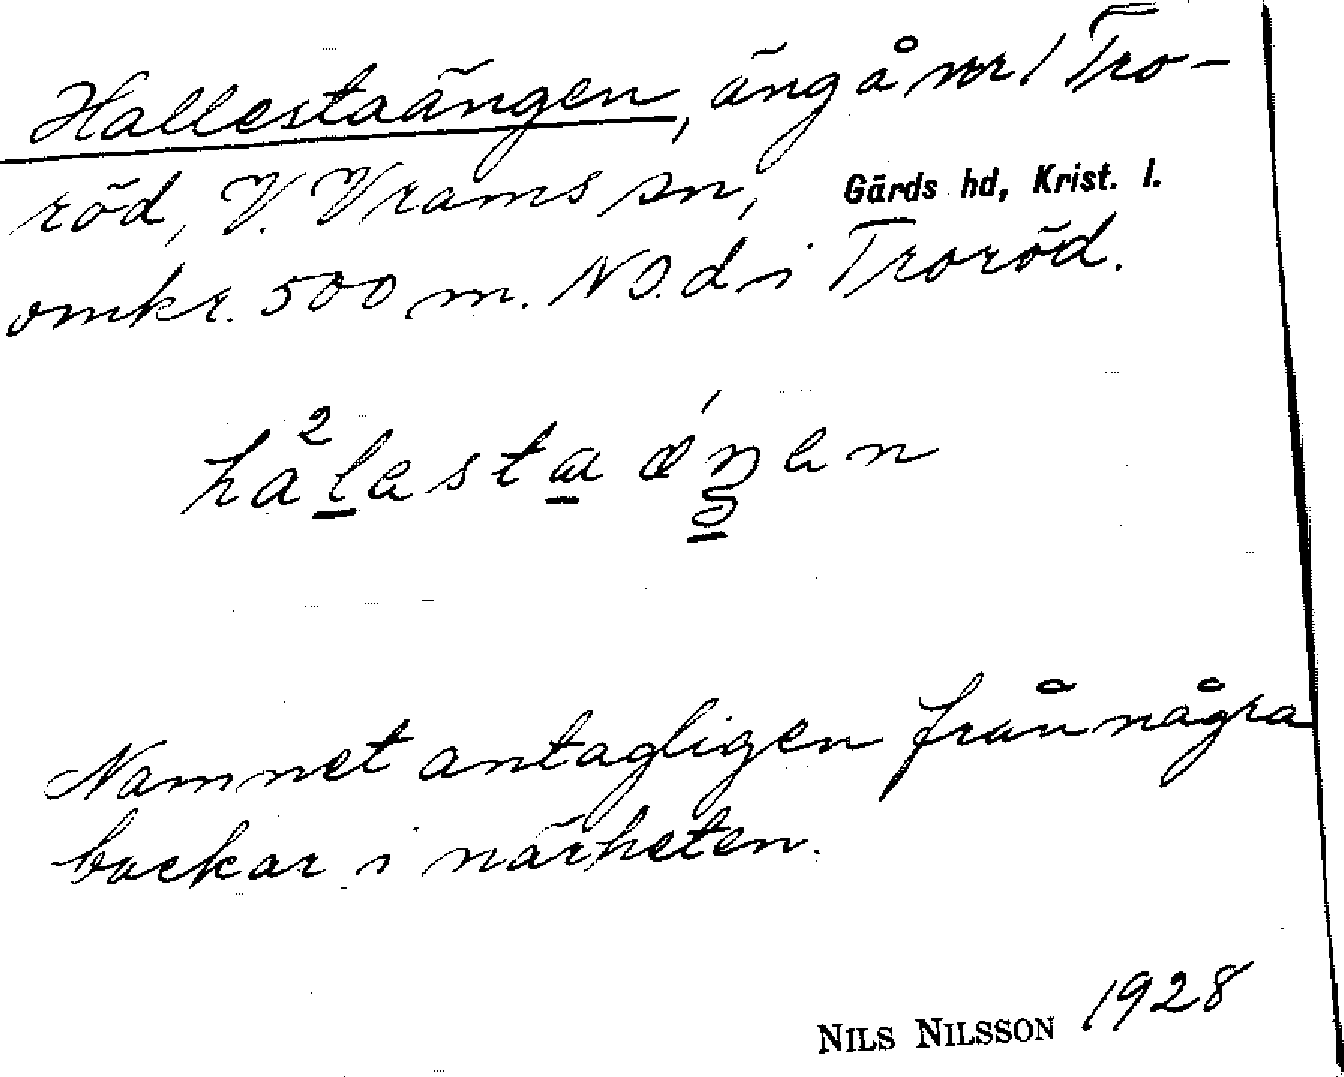 Hallestaängen, äng å nr 1 Tro-
röd, V. Vrams sn, Gärds hd, Krist. l.
omkr. 500 m. NO. d i Troröd.
Namnet antagligen från några
backar i närheten.
NILS NILSSON 1928